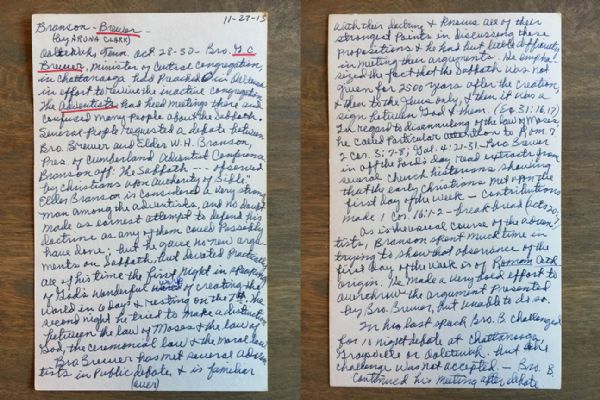 11-27-15
Branson - Brewer
(by ARUNA CLARK)
Ooltewah, Tenn. Oct 28-30 - Bro. G.C.
Brewer, Minister of Central Congregation,
in Chattanooga had Preached in
in effort to revive the inactive congregation.
The Adventists had held meetings there and
confused many people about the Sabbath.
Several People requested a debate between
Bro. Brewer and Elder W.H. Branson,
Pres. of Cumberland Adventist Conference
Branson aff. The Sabbath --- observed
by Christians upon Authority of Bible"
Elder Branson is considered a very strong
man among the adventists, and no doubt
made as earnest attempt to defend his
doctrine as any of them could Possibly
have done; but he gave no new argu-
ments on Sabbath, but devoted Practically
all of his time the first night in speaking
of God's wonderful work of creating the
world in 6 days & resting on the 7th. The
second night he tried to make a distinction
between the law of Moses & the law of
God, the ceremonial law & the Moral law.
Bro Brewer has met several adven-
tists in Public debate, & is familiar
(over)
with their doctrine & knows all of their
strongest Points in discussing these
propositions & he had but little difficulty
in meeting their arguments. He empha-
sized the fact that the Sabbath was not
given for 2500 years after the creation,
& then to the Jews only, & then it was a
sign between God & them. (Ex. 31:16,17)
In regard to disannulling of the law of Moses
he called Particular attention to Rom. 7
2 Cor. 3; 7-8; Gal. 4:21-31. Bro Brewer
in aff the Lord's day read extracts from
several church historians, showing
that the early Christians met upon the
first day of the week - Contributions
made 1 Cor. 16:1-2 - break bread Acts 20:7
As is the usual course of the Adven-
tists, Branson spent much time in
trying to show that observance of the
first day of the week is of Roman Cath
origin. He made a very bold effort to
overthrow the argument Presented
by Bro. Brewer, but unable to do so.
In his last speech Bro. B. challenged
for night debate at Chattanooga,
Graysville or Ooltewah. But the
challenge was not accepted. - Bro. B
Continued his meeting after debate